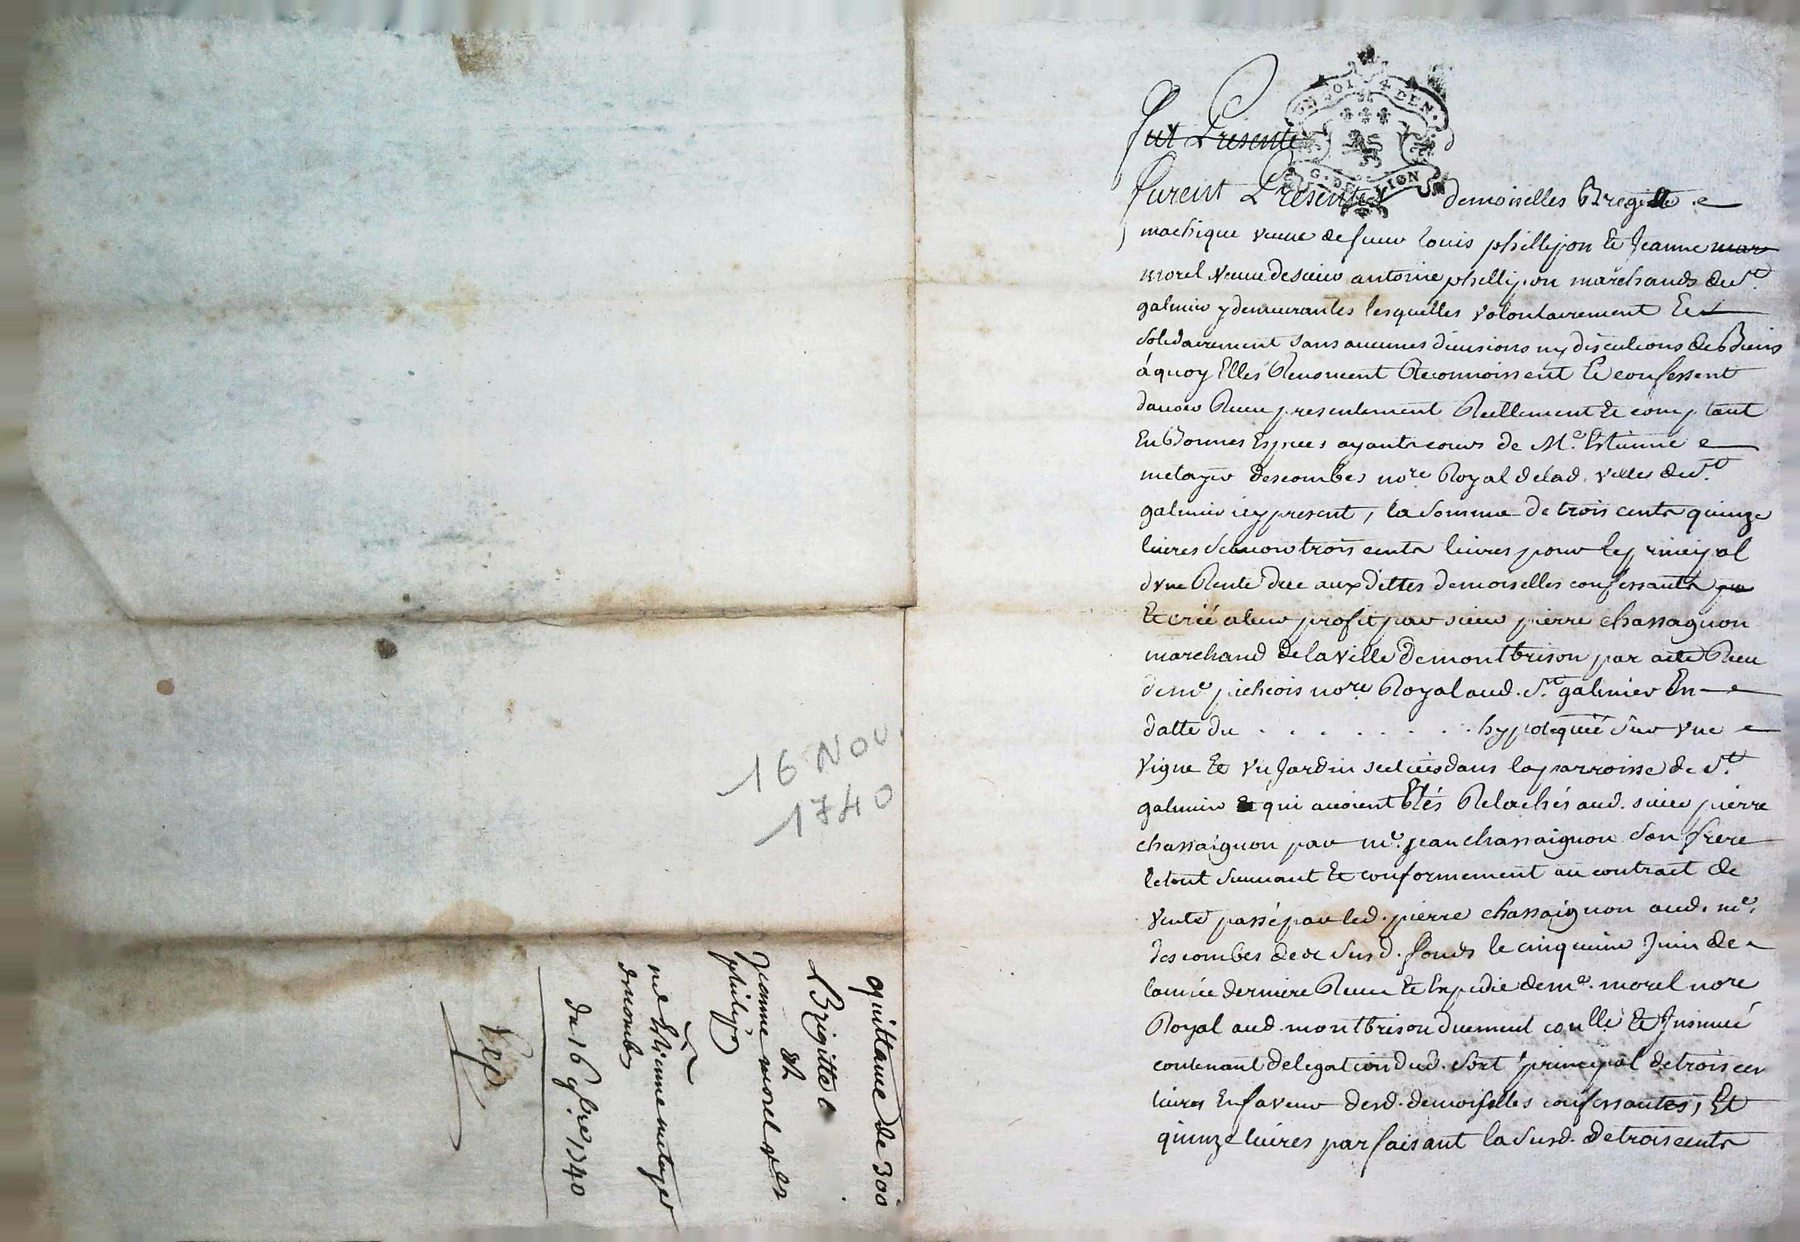 16 NOV.
1740
quittance de 300
Brigitte
et
jeanne morel vves
philipon
me Estienne metayer
descombes
du 16 9bre 1740
Exp
DEN.
G. DE LION
fut Presente
furent Presentes demoiselles Bregitte
machique veuve de sieur louis phillipon et Jeanne mar
morel veuve de sieur antoine phillipon marchands de St.
galmier y demeurantes lesquelles volontairement Et
solidairement sans aucunes divisions ny discutions de Biens
à quoy Elles Renoncent Reconnoissent Et confessent
d'avoir Receu presentement Reellement Et comptant
En Bonnes Especes ayants cours de Me. Estienne
metayer descombes nore. Royal de lad. ville de St.
galmier icy present, la somme de trois cents quinze
livres sçavoir trois cents livres pour le principal
d'vne Rente due aux dittes demoiselles confessants
Et créé a leur profit par sieur pierre chassagnon
marchand de la ville de montbrison par acte Receu
de me pichois nore. Royal aud. St. galmier En
datte du . . . . . . . . hypotequée sur vne
vigne Et vn Jardin scitués dans la parroisse de St.
galmier qui avoient Etés Relachés aud. sieur pierre
chassaignon par me. jean chassaignon son frere
le tout suivant Et conformement au contract de
vente passé par led. pierre chassaignon aud. me.
descombes de ce susd. fonds le cinquieme Juin de
l'année derniere Receu Et Expedié de me. morel nore
Royal aud. montbrison duement conllé Et Insinué
contenant delegation dud. sort principal de trois cen
livres En faveur desd. demoiselles confessantes, Et
quinze livres parfaisant la susd. de trois cents